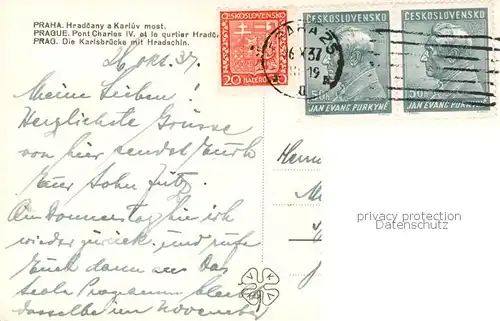 PRAHA. Hradčany a Karlův most.
PRAGUE. Pont Charles IV. et le qurtier Hradč.
PRAG. Die Karlsbrücke mit Hradschin.
26. Okt. 37.
Meine Lieben!
Herzlichste Grüsse
von hier sendet Euch
Euer Sohn Fritz.
Am Donnerstag bin ich
wieder zurück, und rufe
Euch dann an. Das
Programm
dasselbe im November
ČESKOSLOVENSKO
20 HALÉŘŮ 20
ČESKOSLOVENSKO
50h
JAN EVANG. PURKYNĚ
ČESKOSLOVENSKO
50h
JAN EVANG. PURKYNĚ
PRAHA 25
37
19
privacy protection
www.ansichtskarten-center.de
V K K V